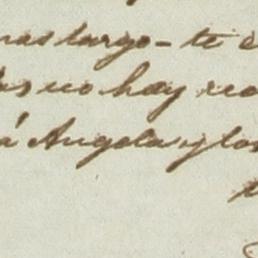 mas largo - te
no hay
á Angola y los